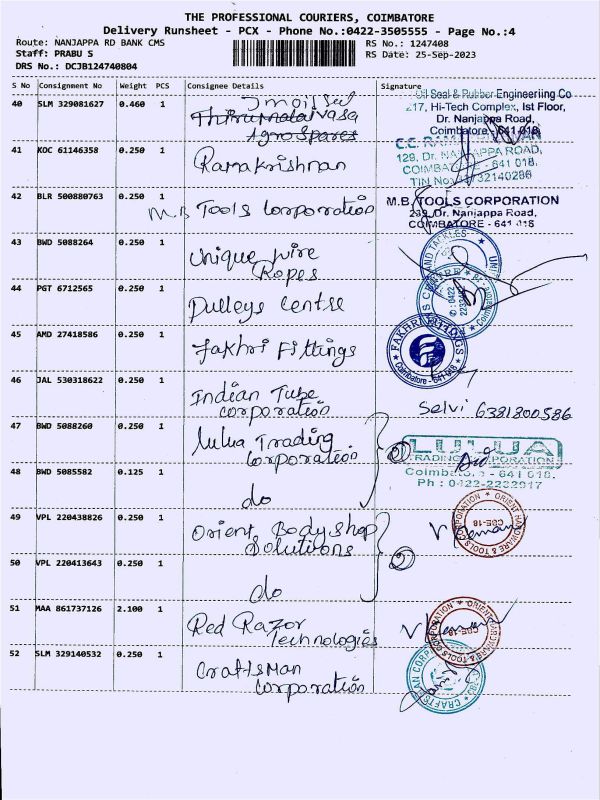 THE PROFESSIONAL COURIERS, COIMBATORE
Delivery Runsheet - PCX - Phone No.:0422-3505555 - Page No.:4
Route: NANJAPPA RD BANK CMS
RS No.: 1247408
Staff: PRABU S
RS Date: 25-Sep-2023
DRS No.: DCJB124740804
S No Consignment No Weight PCS Consignee Details Signature
40 SLM 329081627 0.460 1
Thirumalai Vasa
Agro Spares
Oil Seal & Rubber Engineering Co
217, Hi-Tech Complex, Ist Floor,
Dr. Nanjappa Road,
Coimbatore - 641 018.
41 KOC 61146358 0.250 1 Ramakrishnan
129, Dr. NANJAPPA ROAD,
COIMBATORE - 641 018.
TIN No: 33732140286
42 BLR 500880763 0.250 1 M.B Tools Corporation
M.B. TOOLS CORPORATION
239, Dr. Nanjappa Road,
COIMBATORE - 641 018
43 BWD 5088264 0.250 1 Unique wire
Ropes
AND TACKLES
44 PGT 6712565 0.250 1 Pulleys Centre
45 AMD 27418586 0.250 1 Fakhri Fittings
FAKHRI FITTINGS
Coimbatore - 641 018
46 JAL 530318622 0.250 1 Indian Tube
Corporation
Selvi 6381800586
47 BWD 5088260 0.250 1 Lulua Trading
Corporation
2
LULUA
TRADING CORPORATION
Coimbatore - 641 018.
Ph : 0422-2232917
48 BWD 5085582 0.125 1 do
49 VPL 220438826 0.250 1 Orient Body shop
Solutions
2
ORIENT HARDWARE & TOOLS CORPORATION
CBE-18
50 VPL 220413643 0.250 1 do
51 MAA 861737126 2.100 1 Red Razor
Technologies
ORIENT HARDWARE & TOOLS CORPORATION
CBE-18
52 SLM 329140532 0.250 1 Craftsman
Corporation